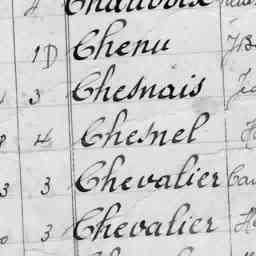 4 Chauvoix
1D Chenu
3 Chesnais
4 Chesnel
3 3 Chevalier
3 Chevalier